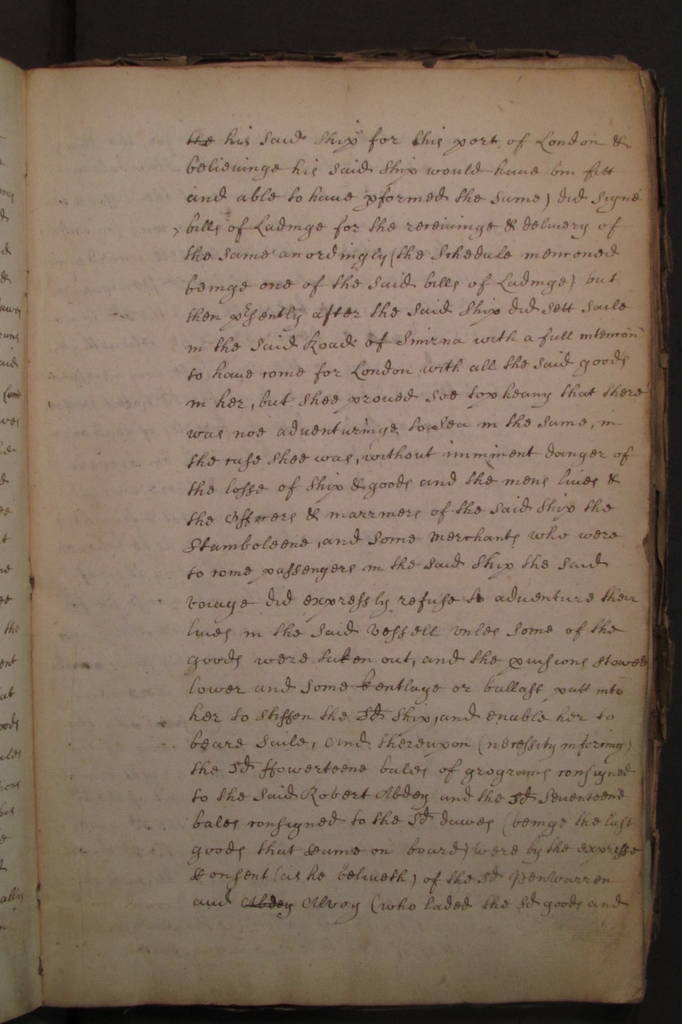 his said ship for this port of London &
believinge his said ship would have bin fitt
and able to have pformed the same) did signe
bills of Ladinge for the receivinge & delivery of
the same accordingly (the schedule mencioned
beinge one of the said bills of Ladinge) but
then pesently after the said ship did sett saile
in the said Road of Smirna with a full intencion
to have come for London with all the said goods
in her, but shee proved soe top heavy that there
was noe adventuringe to sea in the same, in
the case shee was, without imminent danger of
the losse of ship & goods and the mens lives &
the officers & marriners of the said ship the
Stamboleene, and some merchants who were
to come passengers in the said ship the said
voiage did expressly refuse to adventure their
lives in the said vessell unles some of the
goods were taken out, and the pvisions stowed
lower and some kentlage or ballast putt into
her to stiffen the sd ship, and enable her to
beare saile, and thereupon (necessity inforcing)
the sd ffowerteene bales of grograms consigned
to the said Robert Abdey and the sd seventeene
bales consigned to the sd dawes (beinge the last
goods that came on board) were by the expresse
Consent (as he beliveth) of the sd Penwarren
and Abdey Alvoy (who laded the sd goods and